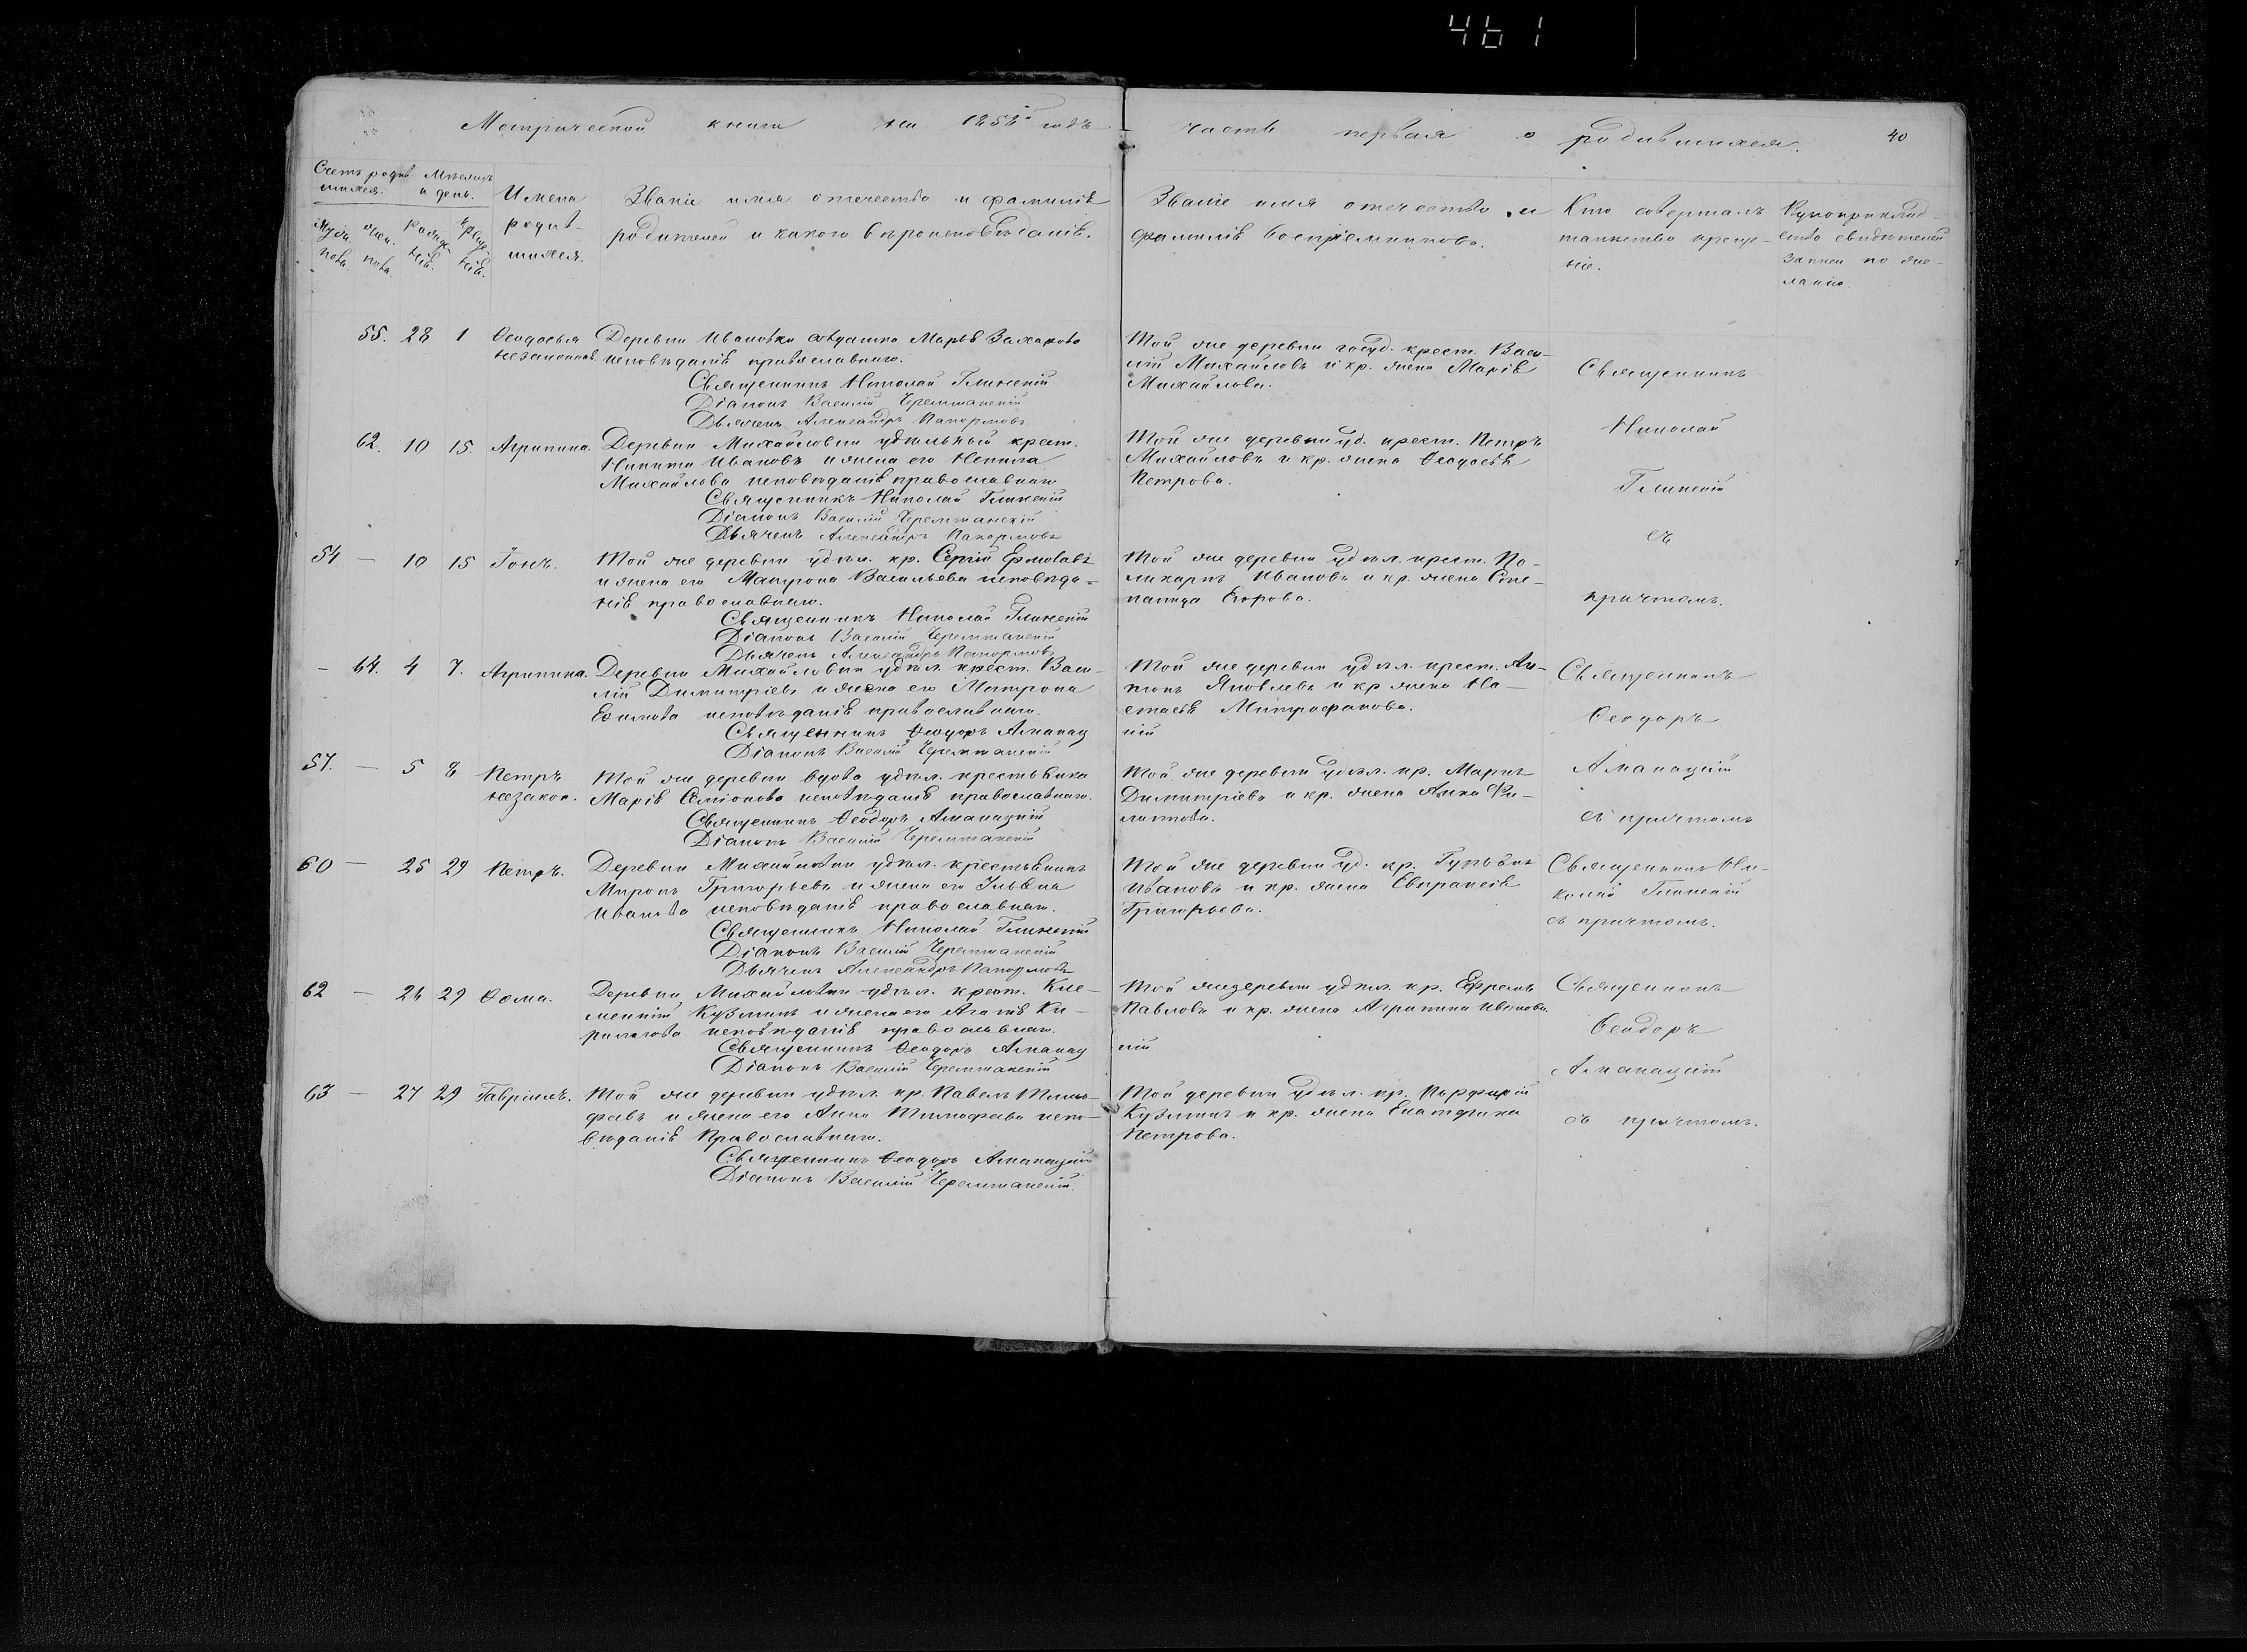 461
Метрической книги на 1858й годъ
часть первая о родившихся.
40
Счетъ родив
шихся.
Мѣсяцъ
и день.
Муж.
пола.
жен.
пола.
рожде
нія.
креще
нія.
Имена
родив-
шихся.
Званіе имя отечество и фамилія
родителей и какого вѣроисповѣданія.
Званіе имя отечество и
фамилія воспріемниковъ.
Кто совершалъ
таинство креще-
ніе.
Рукоприклад-
ство свидѣтелей
записи по же-
ланію.
55. 28 1 Феодосья
незаконнов.
Деревни Ивановки солдатка Марья Захарова
исповѣданія православнаго.
Священникъ Николай Глинскій
Діаконъ Василій Черемшанскій
Дьячекъ Александръ Пакормовъ
Той же деревни госуд. крест. Васи-
лій Михайловъ и кр. жена Марія
Михайлова.
Священникъ
Николай
Глинскій
съ
причтомъ.
62. 10 15. Агрипина.
Деревни Михайловки удѣльный крест.
Никита Ивановъ и жена его Ненила
Михайлова исповѣданія православнаго
Священникъ Николай Глинскій
Діаконъ Василій Черемшанскій
Дьячекъ Александръ Пакормовъ
Той же деревни уд. крест. Петръ
Михайловъ и кр. жена Феодосья
Петрова.
54 — 10 15 Іонъ.
Той же деревни удѣл. кр. Сергій Ермолаевъ
и жена его Матрона Васильева исповѣда-
нія православнаго.
Священникъ Николай Глинскій
Діаконъ Василій Черемшанскій
Дьячекъ Александръ Пакормовъ
Той же деревни удѣл. крест. По-
ликарпъ Ивановъ и кр. жена Сте-
панида Егорова.
— 64. 4 7. Агрипина.
Деревни Михайловки удѣл. крест. Васи-
лій Димитріевъ и жена его Матрона
Ефимова исповѣданія православнаго.
Священникъ Феодоръ Алманац
Діаконъ Василій Черемшанскій
Той же деревни удѣл. крест. Ан-
тонъ Яковлевъ и кр жена На-
стасья Митрофанова.
кій
Священникъ
Феодоръ
Алманацкій
съ причтомъ
57. — 5 8 Петръ
незакон.
Той же деревни вдова удѣл. крестьянка
Марія Семіонова исповѣданія православнаго.
Священникъ Феодоръ Алманацкій
Діаконъ Василій Черемшанскій
Той же деревни удѣл. кр. Маркъ
Димитріевъ и кр. жена Анна Фи-
липпова.
60 — 25 29 Петръ.
Деревни Михайловки удѣл. крестьянинъ
Миронъ Григорьевъ и жена его Ульяна
Иванова исповѣданія православнаго.
Священникъ Николай Глинскій
Діаконъ Василій Черемшанскій
Дьячекъ Александръ Пакормовъ
Той же деревни уд. кр. Гурьянъ
Ивановъ и кр. жена Евпраксія
Григорьева.
Священникъ Ни-
колай Глинскій
съ причтомъ.
62 — 26 29 Фома.
Деревни Михайловки удѣл. крест. Кле-
ментій Кузминъ и жена его Агапія Ки-
рилова исповѣданія православнаго.
Священникъ Феодоръ Алманац
Діаконъ Василій Черемшанскій
Той же деревни удѣл. кр. Ефремъ
Павловъ и кр. жена Агрипина Иванова.
кій
Священникъ
Феодоръ
Алманацкій
съ причтомъ.
63 — 27 29 Гавріилъ.
Той же деревни удѣл. кр. Павелъ Тимо-
феевъ и жена его Анна Тимофеева испо-
вѣданія Православнаго.
Священникъ Феодоръ Алманацкій
Діаконъ Василій Черемшанскій.
Той деревни удѣл. кр. Порфирій
Кузминъ и кр. жена Екатерина
Петрова.